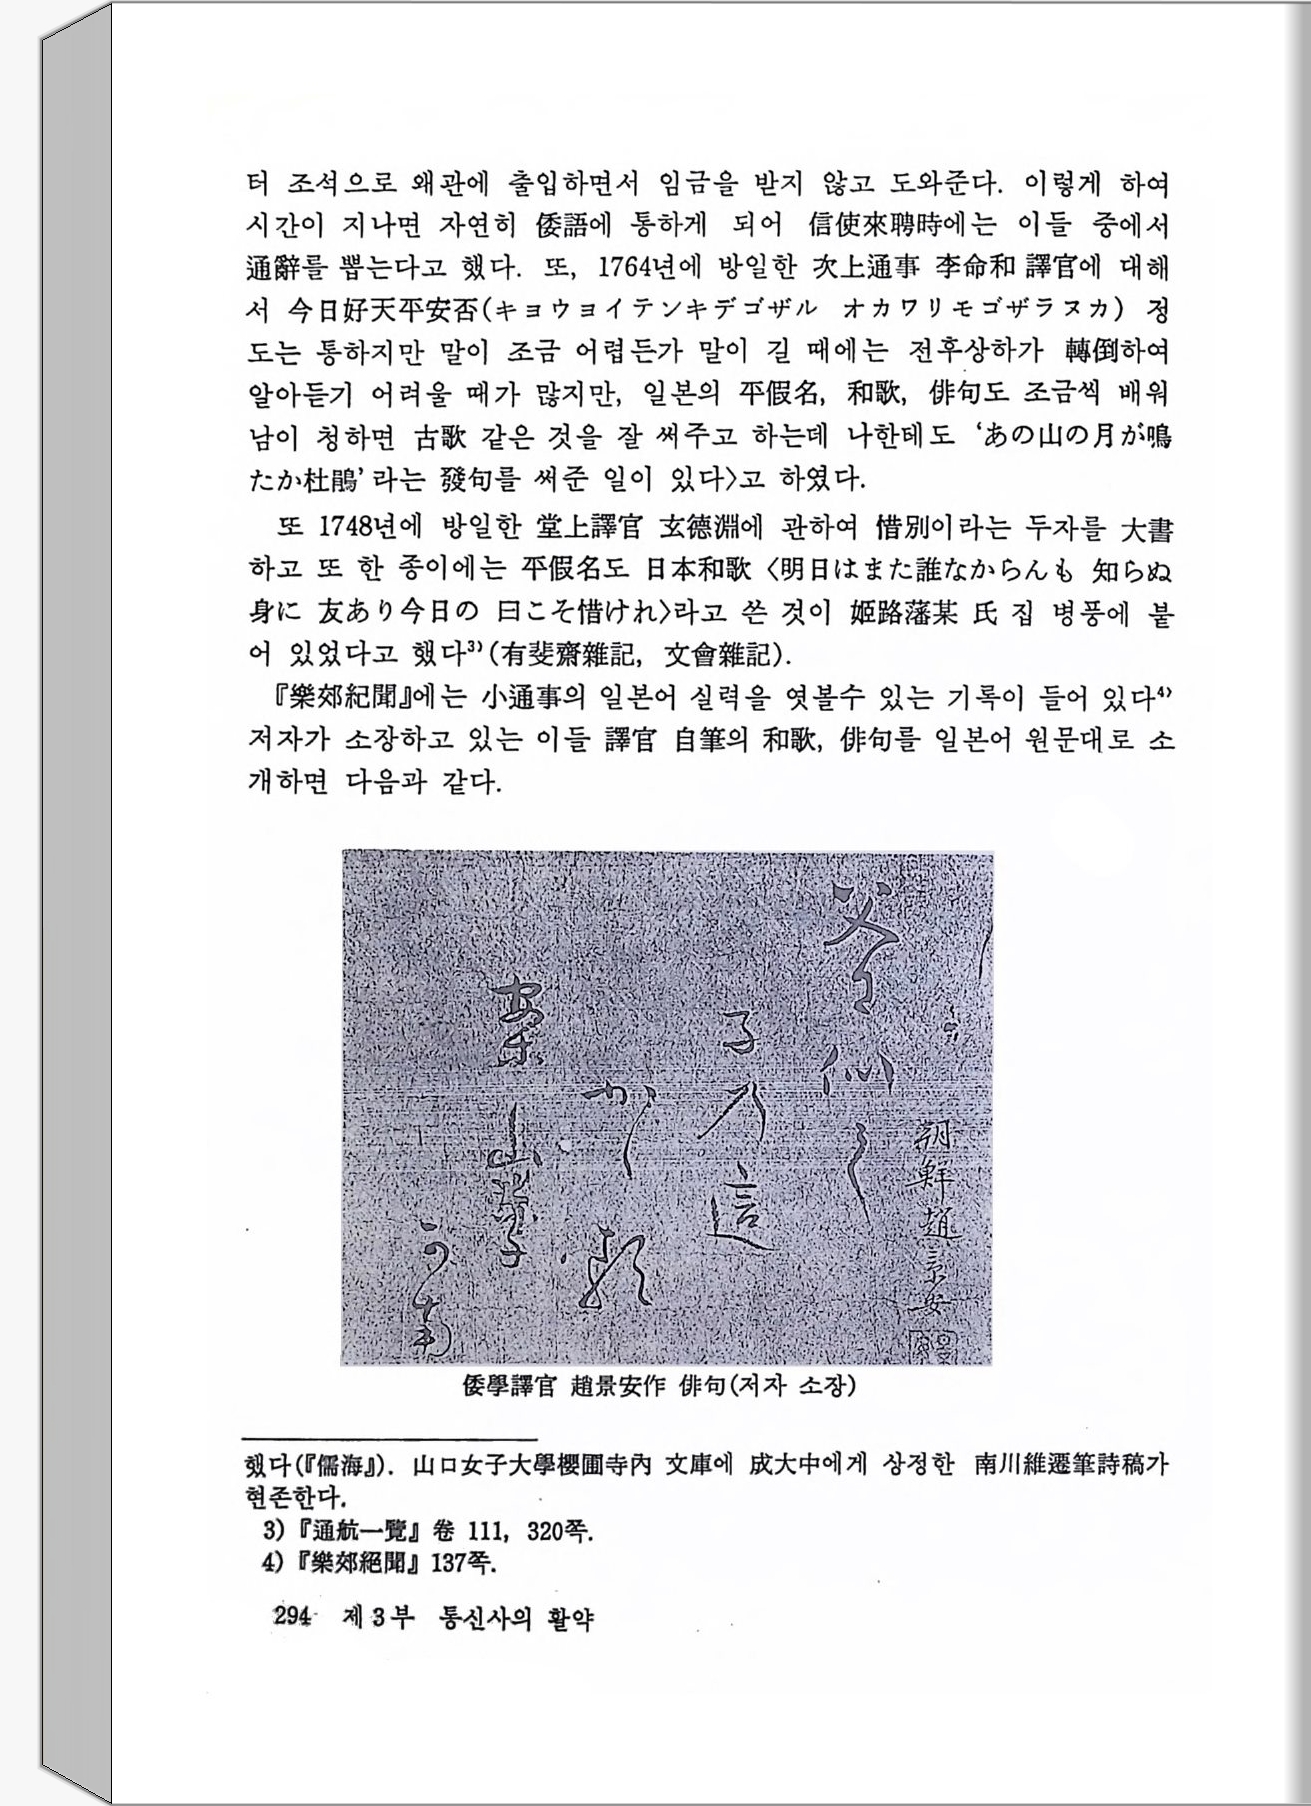 터 조석으로 왜관에 출입하면서 임금을 받지 않고 도와준다. 이렇게 하여
시간이 지나면 자연히 倭語에 통하게 되어 信使來聘時에는 이들 중에서
通辭를 뽑는다고 했다. 또, 1764년에 방일한 次上通事 李命和 譯官에 대해
서 今日好天平安否(キョウヨイテンキデゴザル オカワリモゴザラヌカ) 정
도는 통하지만 말이 조금 어렵든가 말이 길 때에는 전후상하가 轉倒하여
알아듣기 어려울 때가 많지만, 일본의 平假名, 和歌, 俳句도 조금씩 배워
남이 청하면 古歌 같은 것을 잘 써주고 하는데 나한테도 ‘あの山の月が鳴
たか杜鵑’라는 發句를 써준 일이 있다〉고 하였다.
또 1748년에 방일한 堂上譯官 玄德淵에 관하여 惜別이라는 두자를 大書
하고 또 한 종이에는 平假名도 日本和歌 〈明日はまた誰なからんも 知らぬ
身に 友あり今日の 曰こそ惜けれ〉라고 쓴 것이 姬路藩某 氏 집 병풍에 붙
어 있었다고 했다3)(有斐齋雜記, 文會雜記).
『樂郊紀聞』에는 小通事의 일본어 실력을 엿볼수 있는 기록이 들어 있다4)
저자가 소장하고 있는 이들 譯官 自筆의 和歌, 俳句를 일본어 원문대로 소
개하면 다음과 같다.
朝鮮趙景安
倭學譯官 趙景安作 俳句(저자 소장)
했다(『儒海』). 山口女子大學櫻圃寺內 文庫에 成大中에게 상정한 南川維遷筆詩稿가
현존한다.
3)『通航一覽』卷 111, 320쪽.
4)『樂郊絕聞』137쪽.
294 제 3 부 통신사의 활약